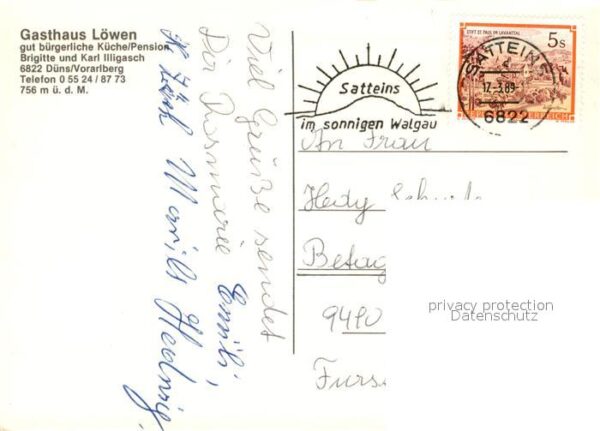 Gasthaus Löwen
gut bürgerliche Küche/Pension
Brigitte und Karl Illigasch
6822 Düns/Vorarlberg
Telefon 0 55 24 / 87 73
756 m ü. d. M.
Viel Grüße sendet
Dir Rosmarie Emili,
Hedwig
Satteins
im sonnigen Walgau
STIFT ST. PAUL IM LAVANTTAL
5s
REPUBLIK ÖSTERREICH
SATTEINS
17.-3.89
6822
An Frau
Hedy
Betag
9490
privacy protection
Datenschutz